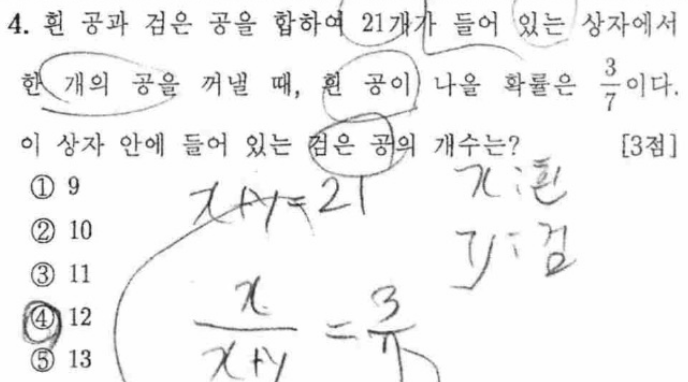 4. 흰 공과 검은 공을 합하여 21개가 들어 있는 상자에서
한 개의 공을 꺼낼 때, 흰 공이 나올 확률은 3/7이다.
이 상자 안에 들어 있는 검은 공의 개수는? [3점]
① 9
x+y=21 x:흰
② 10
y:검
③ 11
④ 12
x/(x+y) = 3/7
⑤ 13